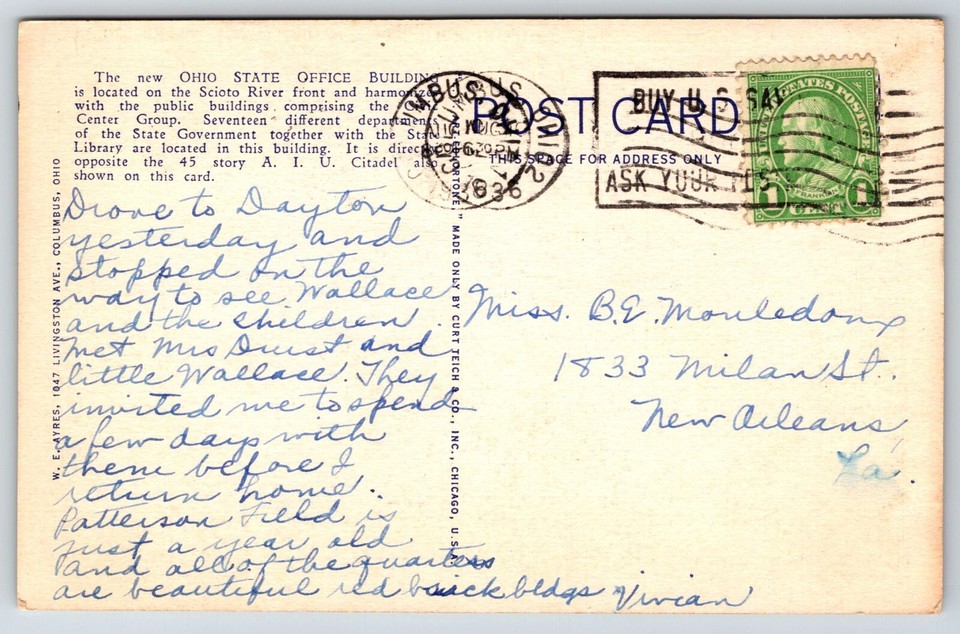 The new OHIO STATE OFFICE BUILDING
is located on the Scioto River front and harmonizes
with the public buildings comprising the
Center Group. Seventeen different departments
of the State Government together with the State
Library are located in this building. It is
opposite the 45 story A. I. U. Citadel also
shown on this card.
POST CARD
THIS SPACE FOR ADDRESS ONLY
BUY U.S. SAV
ASK YOUR POS
1936
FRANKLIN
1 CENT 1
W. E. AYRES, 1047 LIVINGSTON AVE., COLUMBUS, OHIO
MADE ONLY BY CURT TEICH & CO., INC., CHICAGO, U.S.A.
Drove to Dayton
yesterday and
stopped on the
way to see Wallace
and the children.
Met Mrs and
little Wallace. They
invited me to spend
a few days with
them before I
return home.
Patterson Field is
just a year old
and all of the quarters
are beautiful red brick bldgs Vivian
Miss. B.E. Mouledoux
1833 Milan St.
New Orleans,
La.